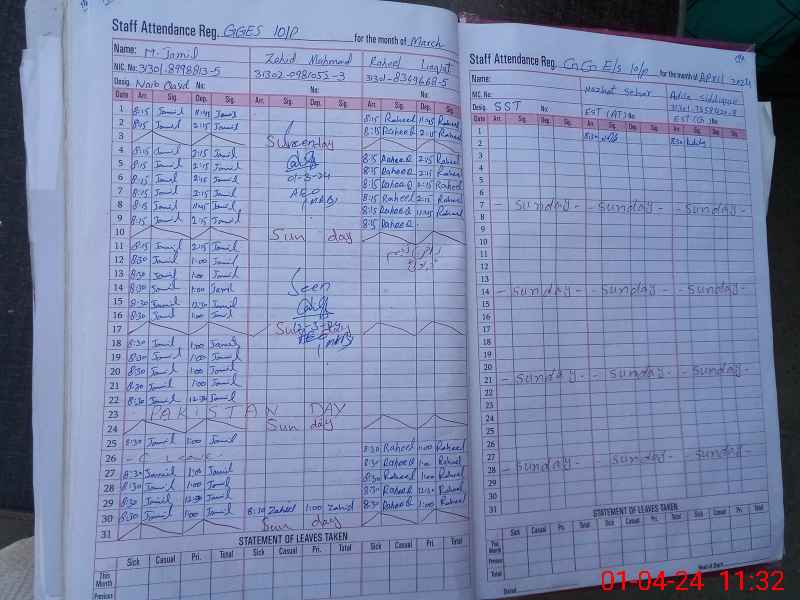 Staff Attendance Reg. GGES 10/P for the month of March
Name: M. Jamil Zahid Mahmad Raheel Liaqat
NIC. No: 31301-8998813-5 31302-0981053-3 31301-8369668-5
Desig. Naib Qasid No: No: No:
Date Arr. Sig. Dep. Sig. Arr. Sig. Dep. Sig. Arr. Sig. Dep. Sig.
1 8:15 Jamil 11:45 Jamil 8:15 Raheel 11:45 Raheel
2 8:15 Jamil 2:15 Jamil 8:15 Raheel 2:15 Raheel
3 Sunday
4 8:15 Jamil 2:15 Jamil 8:15 Raheel 2:15 Raheel
5 8:15 Jamil 2:15 Jamil 8:15 Raheel 2:15 Raheel
6 8:15 Jamil 2:15 Jamil 01-3-24 8:15 Raheel 2:15 Raheel
7 8:15 Jamil 2:15 Jamil AEO 8:15 Raheel 2:15 Raheel
8 8:15 Jamil 11:45 Jamil 8:15 Raheel 11:45 Raheel
9 8:15 Jamil 2:15 Jamil 8:15 Raheel
10 Sun day
11 8:15 Jamil 2:15 Jamil
12 8:30 Jamil 1:00 Jamil
13 8:30 Jamil 1:00 Jamil
14 8:30 Jamil 1:00 Jamil Seen
15 8:30 Jamil 12:30 Jamil
16 8:30 Jamil 1:00 Jamil
17 Sun day
18 8:30 Jamil 1:00 Jamil
19 8:30 Jamil 1:00 Jamil
20 8:30 Jamil 1:00 Jamil
21 8:30 Jamil 1:00 Jamil
22 8:30 Jamil 12:30 Jamil
23 PAKISTAN DAY
24 Sun day
25 8:30 Jamil 1:00 Jamil 8:30 Raheel 1:00 Raheel
26 - C leave - 8:30 Raheel 1:00 Raheel
27 8:30 Jamil 1:00 Jamil 8:30 Raheel 1:00 Raheel
28 8:30 Jamil 1:00 Jamil 8:30 Raheel 1:00 Raheel
29 8:30 Jamil 12:30 Jamil 8:30 Raheel 12:30 Raheel
30 8:30 Jamil 1:00 Jamil 8:30 Zahid 1:00 Zahid 8:30 Raheel 1:00 Raheel
31 Sun day
STATEMENT OF LEAVES TAKEN
Sick Casual Pri. Total Sick Casual Pri. Total Sick Casual Pri. Total
This Month
Previous
Staff Attendance Reg. GGES 10/P for the month of APRIL 2024
Name: Nuzhat Sehar Adila Siddique
NIC. No:
Desig. SST No: EST (AT) No:
Date Arr. Sig. Dep. Sig. Arr. Sig. Dep. Sig. Arr. Sig. Dep. Sig.
1 8:30 8:30
2
3
4
5
6
7 - Sunday - - Sunday - - Sunday -
8
9
10
11
12
13
14 - Sunday - - Sunday - - Sunday -
15
16
17
18
19
20
21 - Sunday - - Sunday - - Sunday -
22
23
24
25
26
27
28 - Sunday - - Sunday - - Sunday -
29
30
31
STATEMENT OF LEAVES TAKEN
Sick Casual Pri. Total Sick Casual Pri. Total Sick Casual Pri. Total
This Month
Previous
Total
01-04-24 11:32